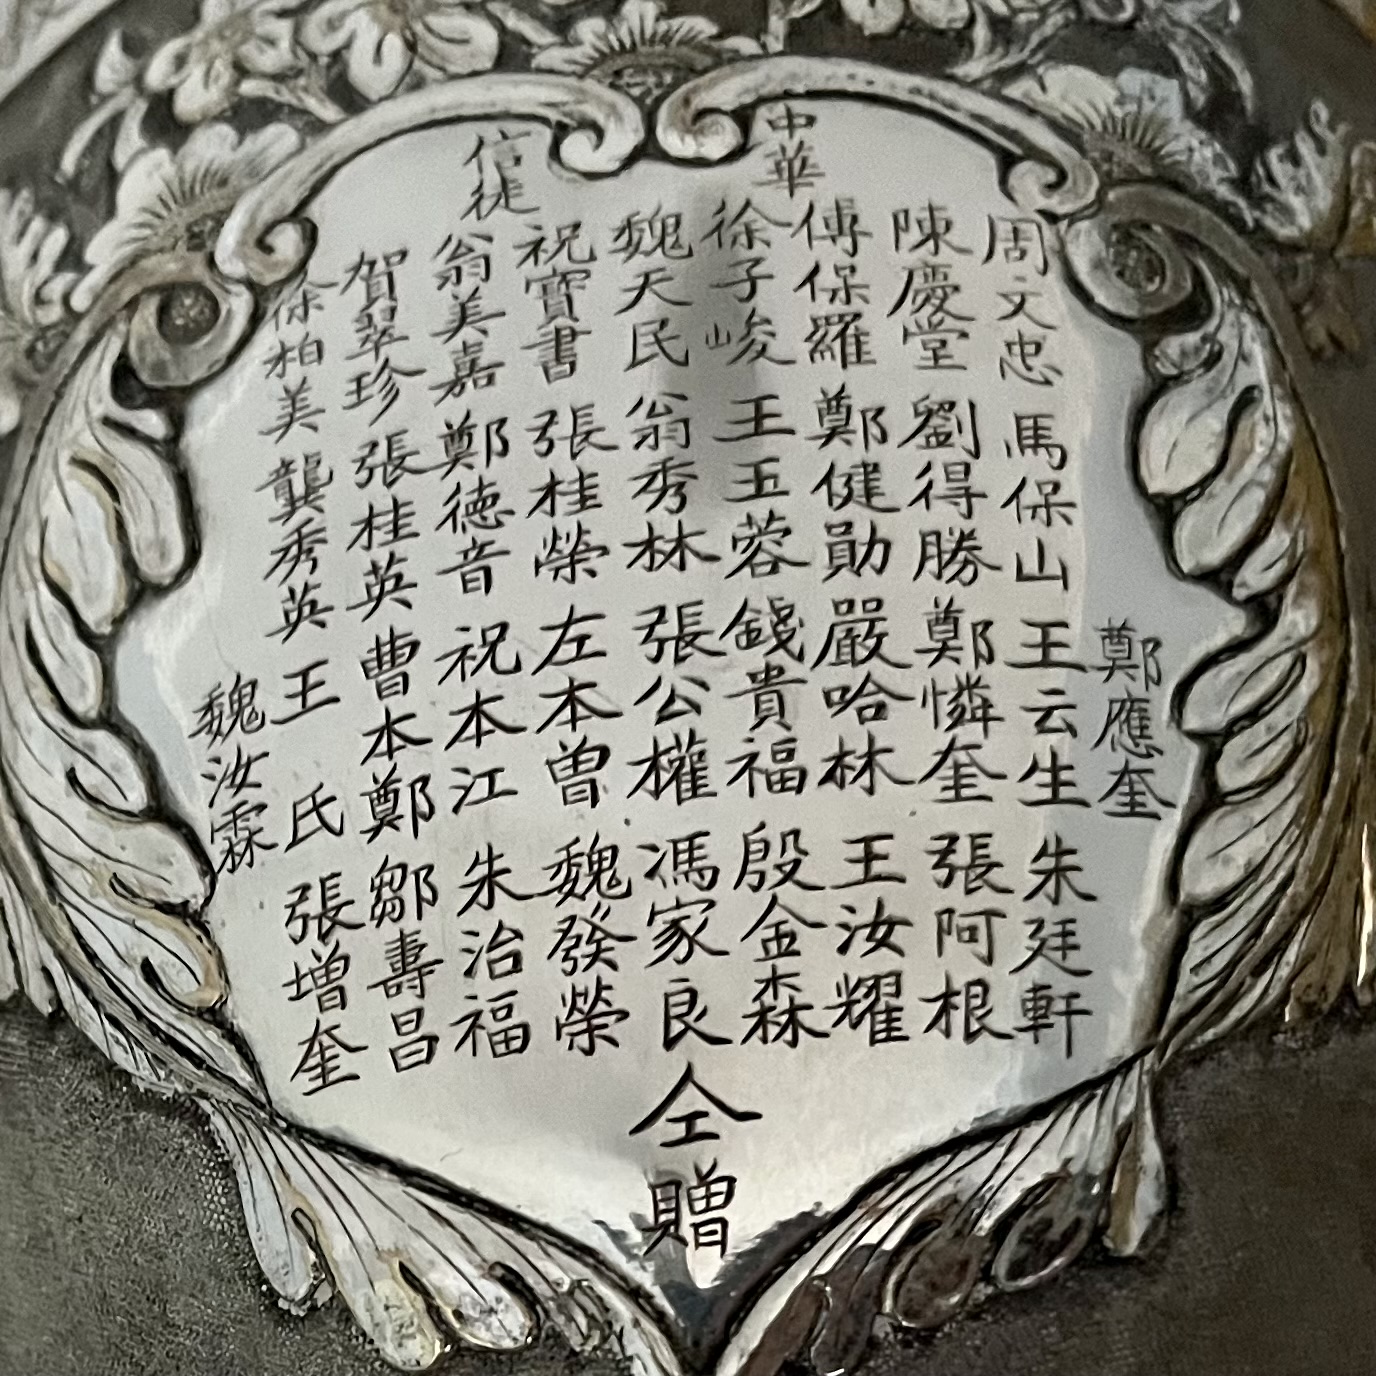 中華
信徒
鄭應奎
周文忠 馬保山 王云生 朱廷軒
陳慶堂 劉得勝 鄭憐奎 張阿根
傅保羅 鄭健勛 嚴哈林 王汝耀
徐子峻 王玉蓉 錢貴福 殷金森
魏天民 翁秀林 張公權 馮家良
祝寶書 張桂榮 左本曾 魏發榮
翁美嘉 鄭德音 祝本江 朱治福
賀翠珍 張桂英 曹本鄭 鄒壽昌
徐柏美 龔秀英 王氏 張增奎
魏汝霖
仝贈